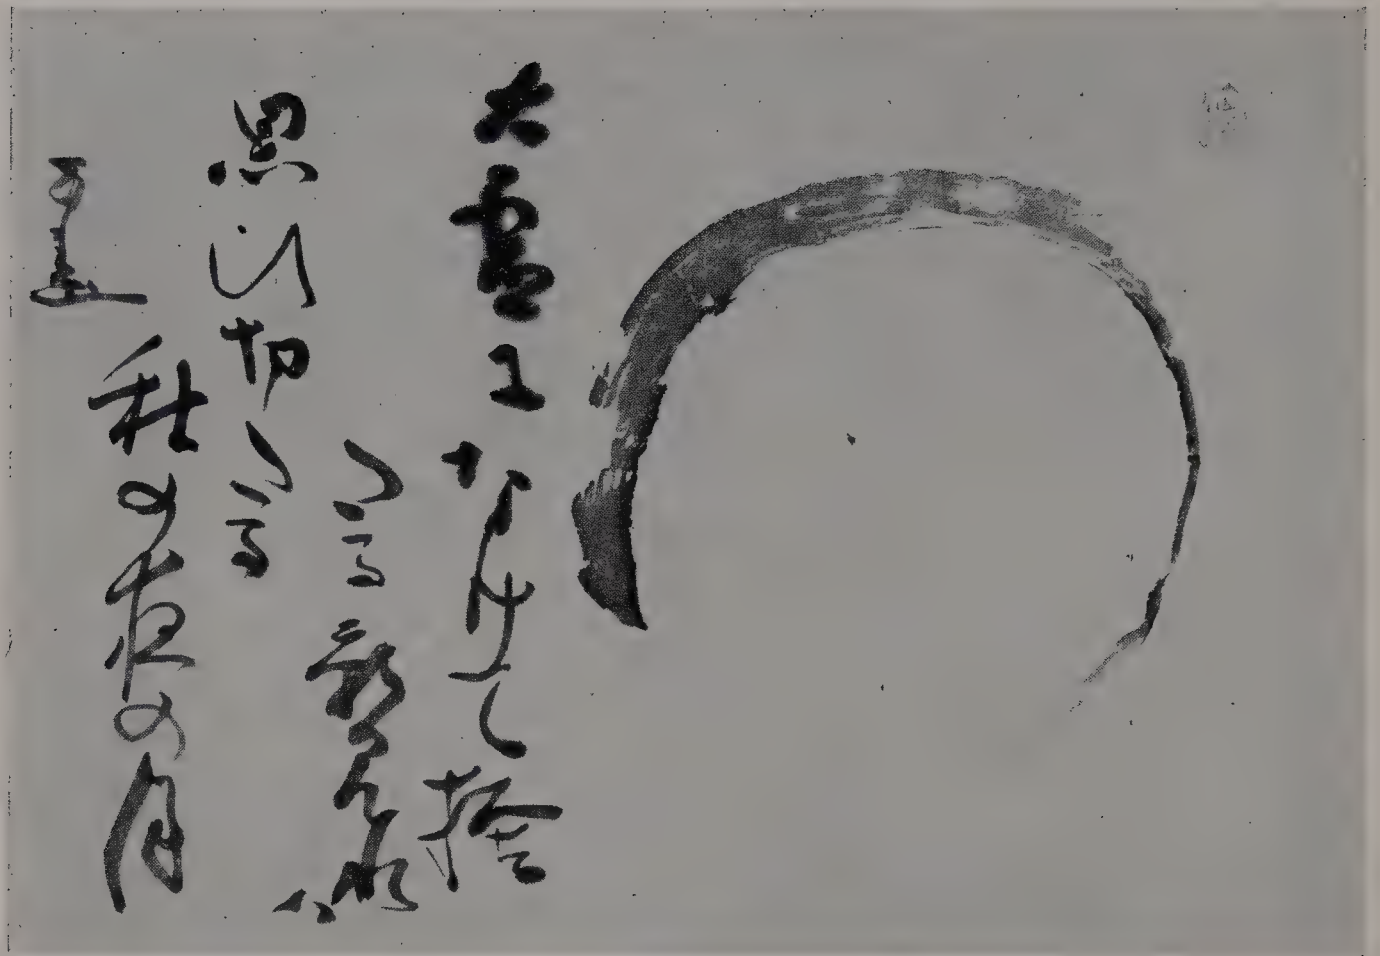 大虚エなけて捨
たる影見れハ
思ひ切たる
秋の夜の月